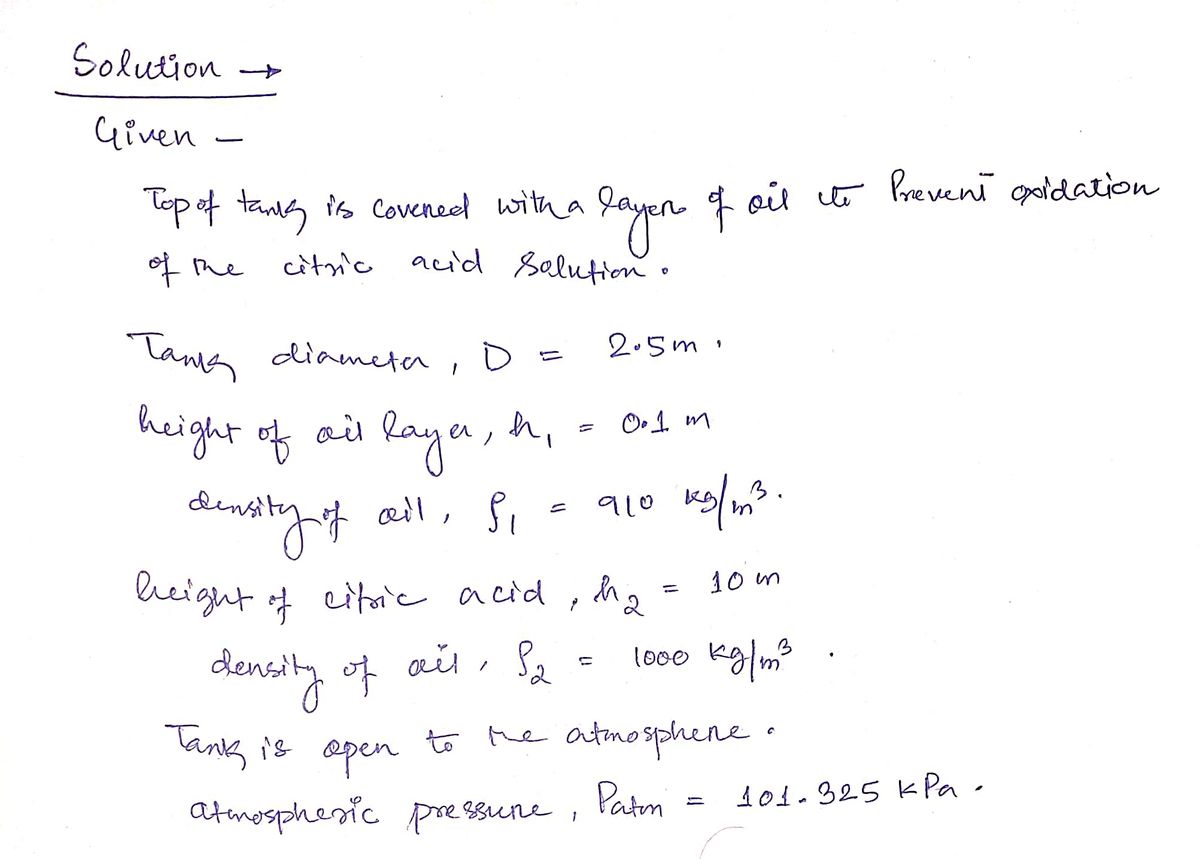 Solution →
Given –
Top of tank is covered with a layer of oil to Prevent oxidation
of the citric acid Solution.
Tank diameter, D = 2.5m.
height of oil layer, h₁ = 0.1 m
density of oil, ρ₁ = 910 kg/m³.
height of citric acid, h₂ = 10 m
density of oil, ρ₂ = 1000 kg/m³.
Tank is open to the atmosphere.
atmospheric pressure, Patm = 101.325 kPa.